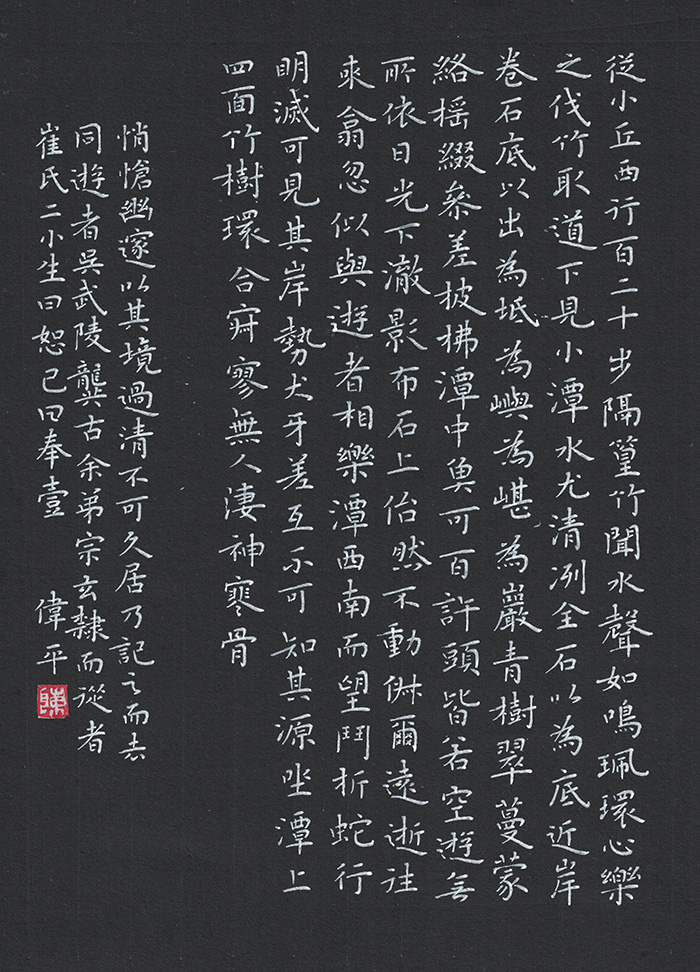 從小丘西行百二十步隔篁竹聞水聲如鳴珮環心樂
之伐竹取道下見小潭水尤清冽全石以為底近岸
卷石底以出為坻為嶼為嵁為巖青樹翠蔓蒙
絡搖綴參差披拂潭中魚可百許頭皆若空遊無
所依日光下澈影布石上佁然不動俶爾遠逝往
來翕忽似與遊者相樂潭西南而望鬥折蛇行
明滅可見其岸勢犬牙差互不可知其源坐潭上
四面竹樹環合寂寥無人淒神寒骨
悄愴幽邃以其境過清不可久居乃記之而去
同遊者吳武陵龔古余弟宗玄隸而從者
崔氏二小生曰恕己曰奉壹 偉平
陳